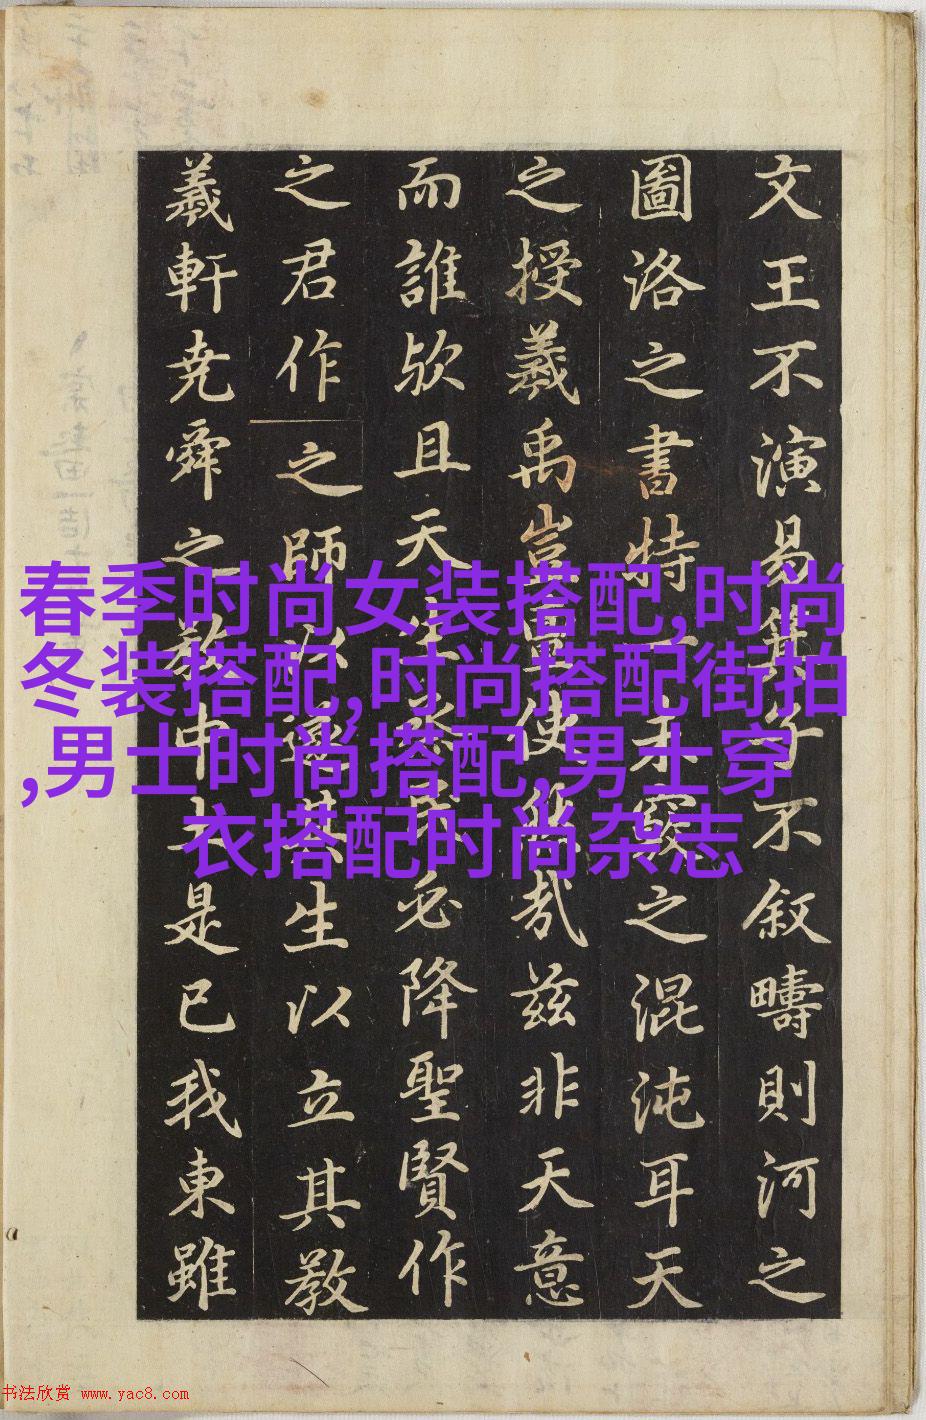 文王不演易子不叙疇則河之
圖洛之書特一未竅之混沌耳天
之授羲禹豈使哉兹非天意
而誰欤且天生民必降聖賢作
之君作之師以其生以立其教
羲軒尭舜之教中土是已我東雖
春季时尚女装搭配,时尚
冬装搭配,时尚搭配街拍
,男士时尚搭配,男士穿
衣搭配时尚杂志
书法欣赏 www.yac8.com